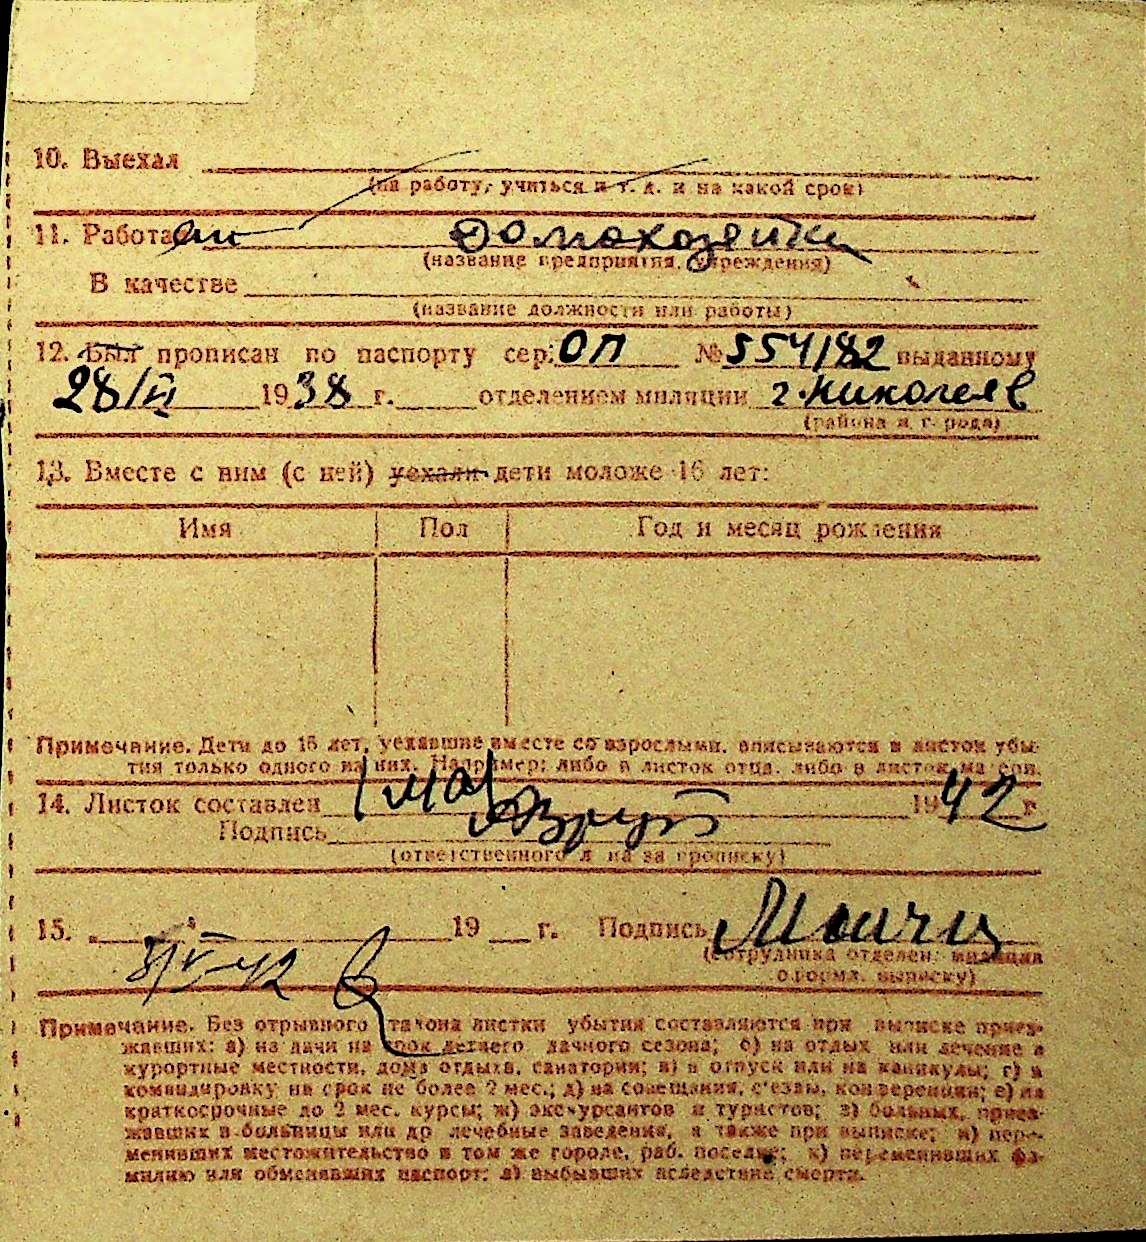 10. Выехал
(на работу, учиться и т. д. и на какой срок)
11. Работа ет домохозяйка
(название предприятия, учреждения)
В качестве
(название должности или работы)
12. Был прописан по паспорту сер. ОП № 554182 выданному
28/VI 1938 г. отделением милиции г. Николаев
(района и города)
13. Вместе с ним (с ней) уехали дети моложе 16 лет:
Имя Пол Год и месяц рождения
Примечание. Дети до 16 лет, уехавшие вместе со взрослыми, вписываются в листок убы-
тия только одного из них. Например: либо в листок отца, либо в листок матери.
14. Листок составлен 1 мая 1942 г
Подпись
(ответственного л на за прописку)
15. 19 г. Подпись
5/V-42
(сотрудника отделен. милиции
оформл. выписку)
Примечание. Без отрывного талона листки убытия составляются при выписке приез-
жавших: а) на дачи на срок летнего дачного сезона; б) на отдых или лечение в
курортные местности, дома отдыха, санатории; в) в отпуск или на каникулы; г) в
командировку на срок не более 2 мес.; д) на совещания, съезды, конференции; е) на
краткосрочные до 2 мес. курсы; ж) экскурсантов и туристов; з) больных, приез-
жавших в больницы или др лечебные заведения, а также при выписке; и) пере-
менивших местожительство в том же городе, раб. поселке; к) переменивших фа-
милию или обменявших паспорт; л) выбывших вследствие смерти.